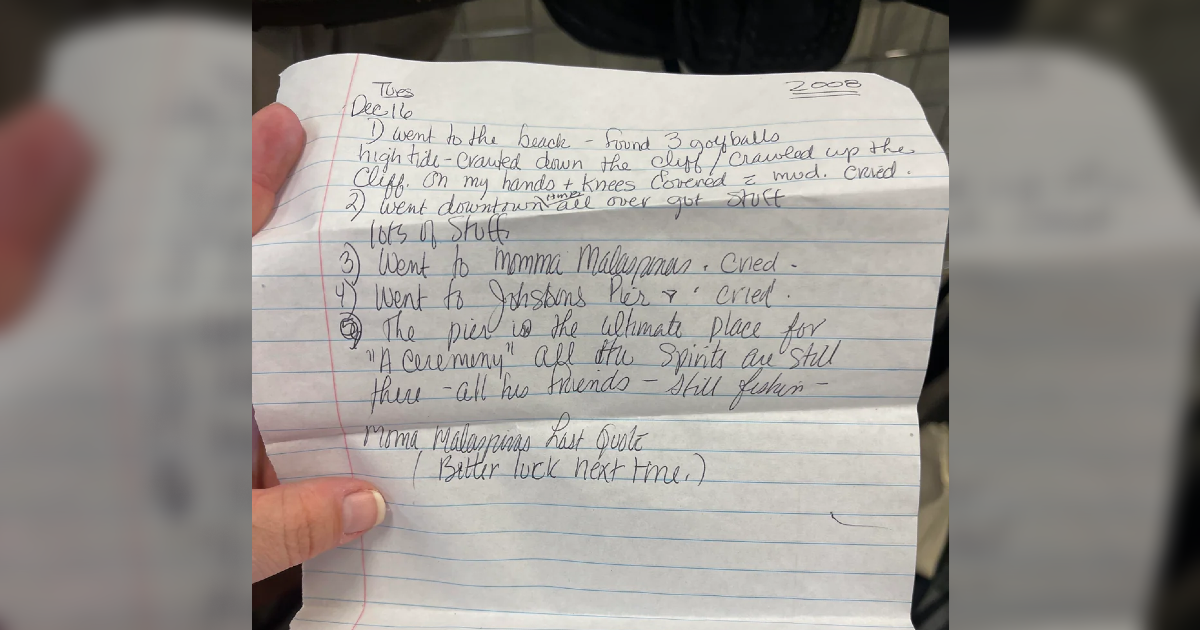 Tues
2008
Dec 16
1) went to the beach - found 3 golfballs
high tide - crawled down the cliff / crawled up the
cliff. On my hands + knees covered c̄ mud. Cried.
2) went downtown all over got stuff
lots of stuff.
3) Went to Momma Malaspinas. Cried.
4) Went to Johstons Pier & cried.
5) The pier is the ultimate place for
"A ceremony" all the spirits are still
there - all his friends - still fishin -
Moma Malaspinas Last Quote
(Better luck next time.)